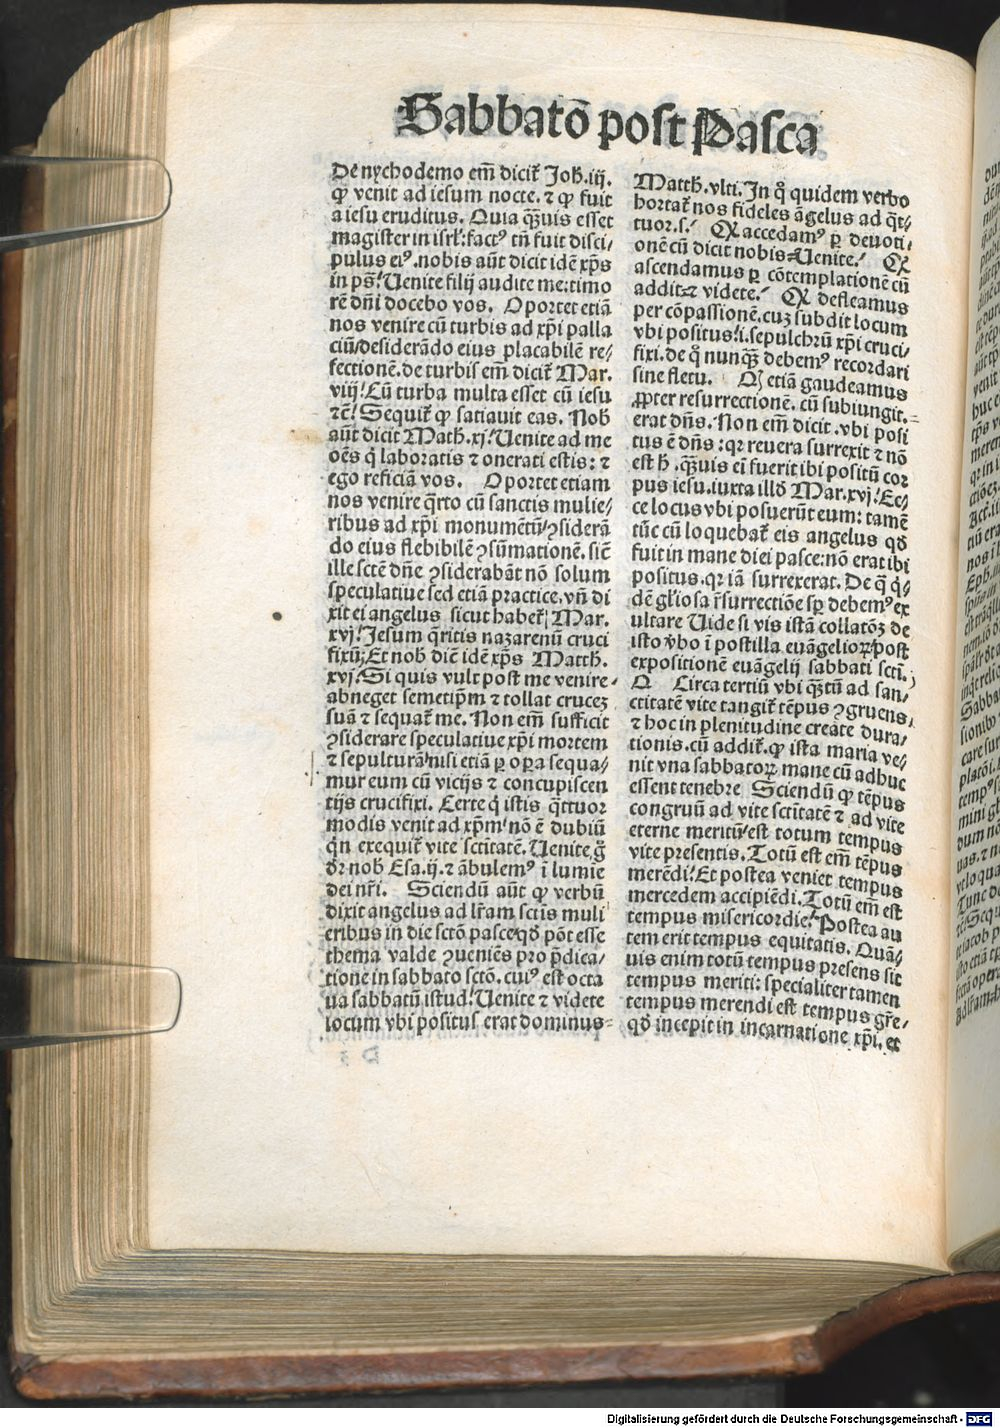 Sabbatō post Pasca
De nychodemo em̄ dicit᷑ Joh̄. iij.
ꝙ venit ad iesum nocte. ⁊ ꝙ fuit
a iesu eruditus. Quia q̄ꝫuis esset
magister in isrl̄: factꝰ tn̄ fuit disci⸗
pulus eiꝰ. nobis aūt dicit idē xp̄s
in ps̄. Uenite filij audite me: timo
rē dn̄i docebo vos. Oportet etiā
nos venire cū turbis ad xp̄i palla
ciū/desiderādo eius placabilē re⸗
fectionē. de turbis em̄ dicit᷑ Mar.
viij. Cū turba multa esset cū iesu
⁊cē. Sequit᷑ ꝙ satiauit eas. Nob̄
aūt dicit Math̄. xj. Uenite ad me
oēs q̄ laboratis ⁊ onerati estis: ⁊
ego reficiā vos. Oportet etiam
nos venire q̄rto cū sanctis mulie⸗
ribus ad xp̄i monumētū/ꝯsiderā
do eius flebibilē ꝯsūmationē. sic̄
ille sctē dn̄e ꝯsiderabāt nō solum
speculatiue sed etiā practice. vn̄ di
xit ei angelus sicut habet᷑ Mar.
xvj. Jesum q̄ritis nazarenū cruci
fixū; Et nob̄ dic̄ idē xp̄s Matth̄.
xvj. Si quis vult post me venire⸗
abneget semetip̄m ⁊ tollat crucez
suā ⁊ sequat᷑ me. Non em̄ sufficit
ꝯsiderare speculatiue xp̄i mortem
⁊ sepulturā/nisi etiā ꝑ oꝑa sequa⸗
mur eum cū vicijs ⁊ concupiscen
tijs crucifixi. Certe q̄ istis q̄ttuor
modis venit ad xp̄m/nō ē dubiū
q̄n exequit᷑ vite sctitatē. Uenite ḡ
dr̄ nob̄ Esa. ij. ⁊ ābulemꝰ ī lumie
dei nr̄i. Sciendū aūt ꝙ verbū
dixit angelus ad lr̄am sctis muli
eribus in die sctō pasce/qd̄ pōt esse
thema valde ꝯueniēs pro p̄dica⸗
tione in sabbato sctō. cuiꝰ est octa
ua sabbatū istud. Uenite ⁊ videte
locum vbi positus erat dominus⸗
Matth̄. vlti. In q̊ quidem verbo
hortat᷑ nos fideles āgelus ad q̄t⸗
tuor. s. Ꝙ accedamꝰ ꝑ deuoti⸗
onē cū dicit nobis⸗Uenite. Ꝙ
ascendamus ꝑ cōtemplationē cū
addit⸗⁊ videte. Ꝙ defleamus
per cōpassionē. cuz subdit locum
vbi positus. i. sepulchrū xp̄i cruci⸗
fixi. de q̊ nunq̄ꝫ debemꝰ recordari
sine fletu. Ꝙ etiā gaudeamus
ꝓpter resurrectionē. cū subiungit.⸗
erat dn̄s. Non em̄ dicit. vbi posi
tus ē dn̄s: qꝛ reuera surrexit ⁊ nō
est h̄. q̄ꝫuis ei fuerit ibi positū coꝛ
pus iesu. iuxta illd̄ Mar. xvj. Ec⸗
ce locus vbi posuerūt eum: tamē
tūc cū loquebat᷑ eis angelus qd̄
fuit in mane diei pasce: nō erat ibi
positus. qꝛ iā surrexerat. De q̄ q̄⸗
dē gl̄iosa ī surrectiōe sꝑ debemꝰ ex
ultare Uide si vis istā collatōꝫ de
isto v̄bo ī postilla euāgelioꝝ/post
expositionē euāgelij sabbati sctī.
Q Circa tertiū vbi q̄ꝫtū ad san⸗
ctitatē vite tangit᷑ tēpus ꝯgruens⸗
⁊ hoc in plenitudine create dura⸗
tionis. cū addit᷑. ꝙ ista maria ve⸗
nit vna sabbatoꝝ mane cū adhuc
essent tenebre Sciendū ꝙ tēpus
congruū ad vite sctitatē ⁊ ad vite
eterne meritū/est totum tempus
vite presentis. Totū est em̄ tēpus
merēdi. Et postea veniet tempus
mercedem accipiēdi. Totū em̄ est
tempus misericordie. Postea au
tem erit tempus equitatis. Quā⸗
uis enim totū tempus presens sit
tempus meriti: specialiter tamen
tempus merendi est tempus gr̄e⸗
qd̄ incepit in incarnatione xp̄i. et
Digitalisierung gefördert durch die Deutsche Forschungsgemeinschaft - DFG